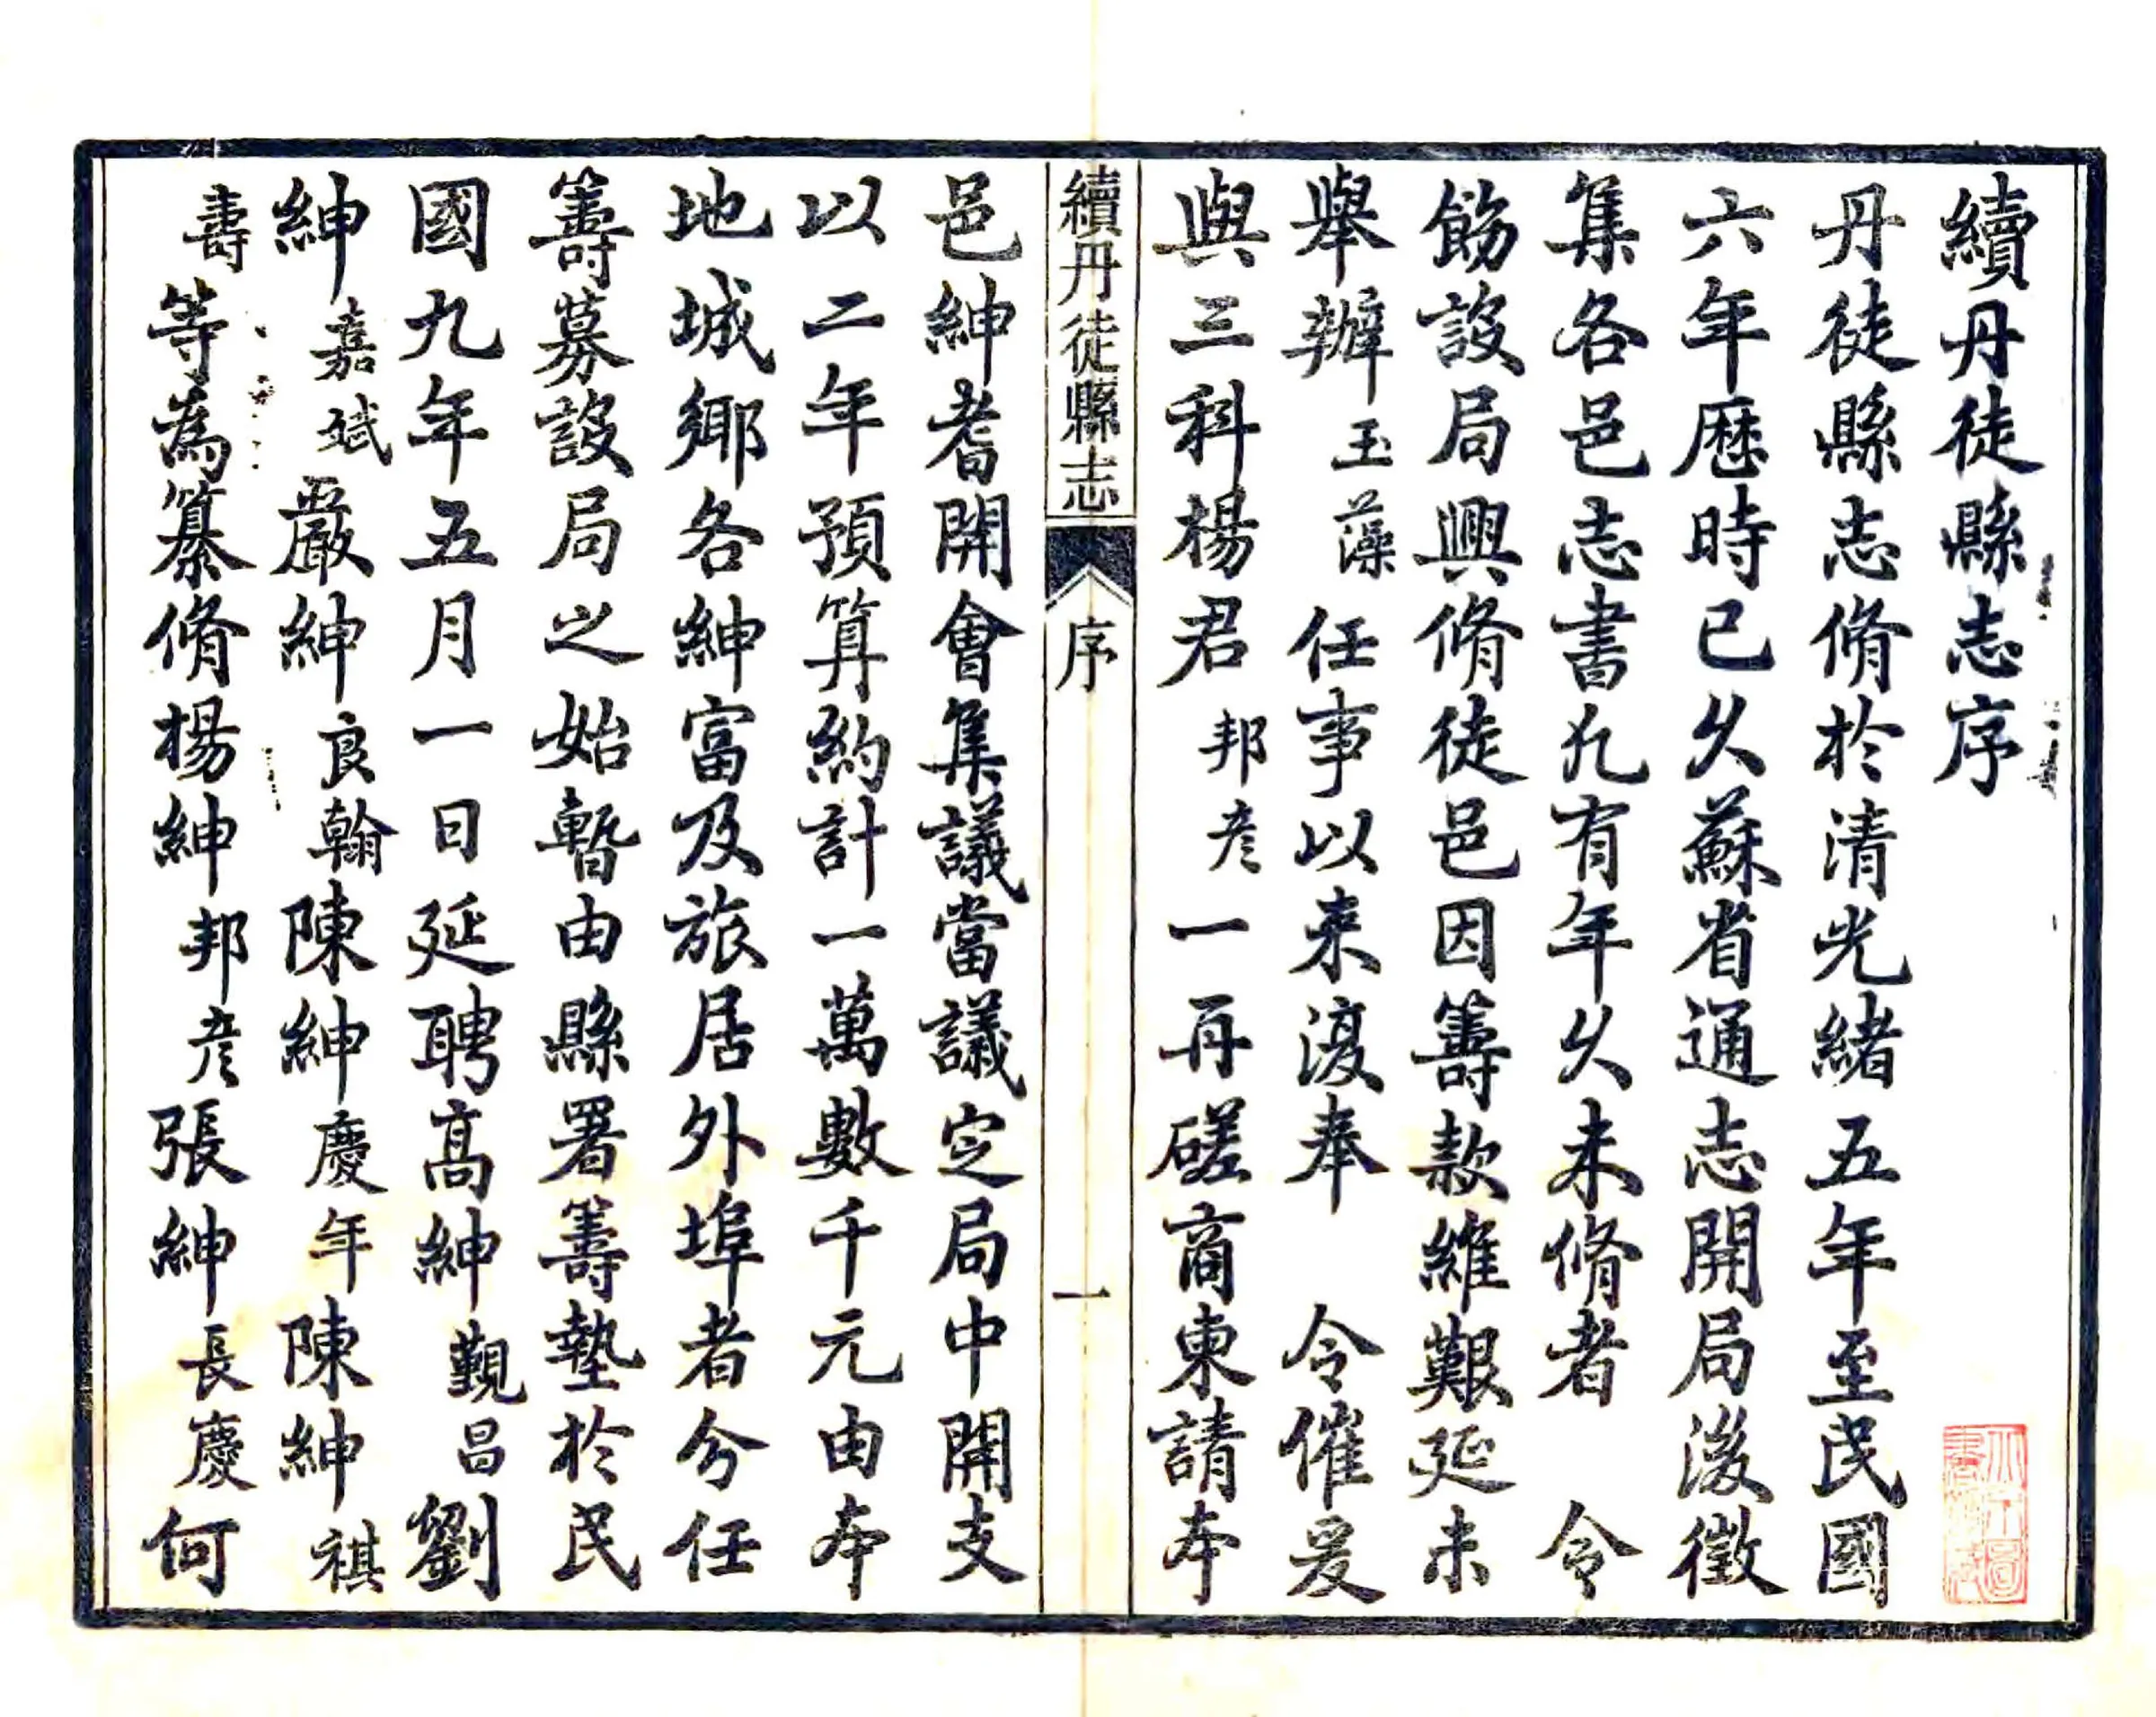 續丹徒縣志序
丹徒縣志脩於清光緒五年至民國
六年歷時已久蘇省通志開局後徵
集各邑志書凢有年久未脩者　令
飭設局興脩徒邑因籌款維艱延未
舉辦玉藻任事以來復奉　令催爰
與三科楊君邦彥一再磋商柬請本
續丹徒縣志　序　一
邑紳耆開會集議當議定局中開支
以二年預算約計一萬數千元由本
地城鄉各紳富及旅居外埠者分任
籌募設局之始暫由縣署籌墊於民
國九年五月一日延聘高紳覲昌劉
紳嘉斌嚴紳良翰陳紳慶年陳紳祺
壽等為纂脩楊紳邦彥張紳長慶何